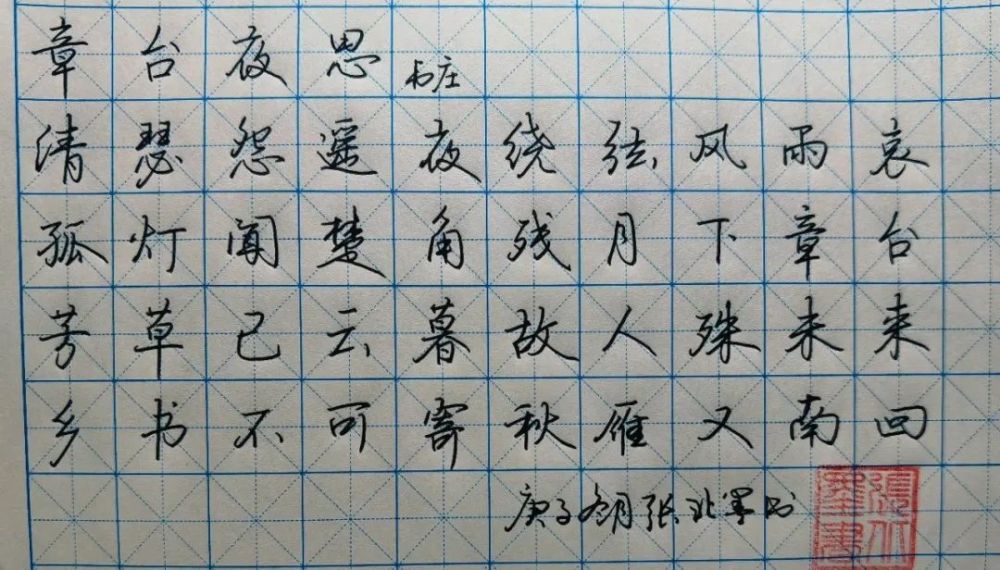 章台夜思 韦庄
清瑟怨遥夜绕弦风雨哀
孤灯闻楚角残月下章台
芳草已云暮故人殊未来
乡书不可寄秋雁又南回
庚子冬月张北墨书